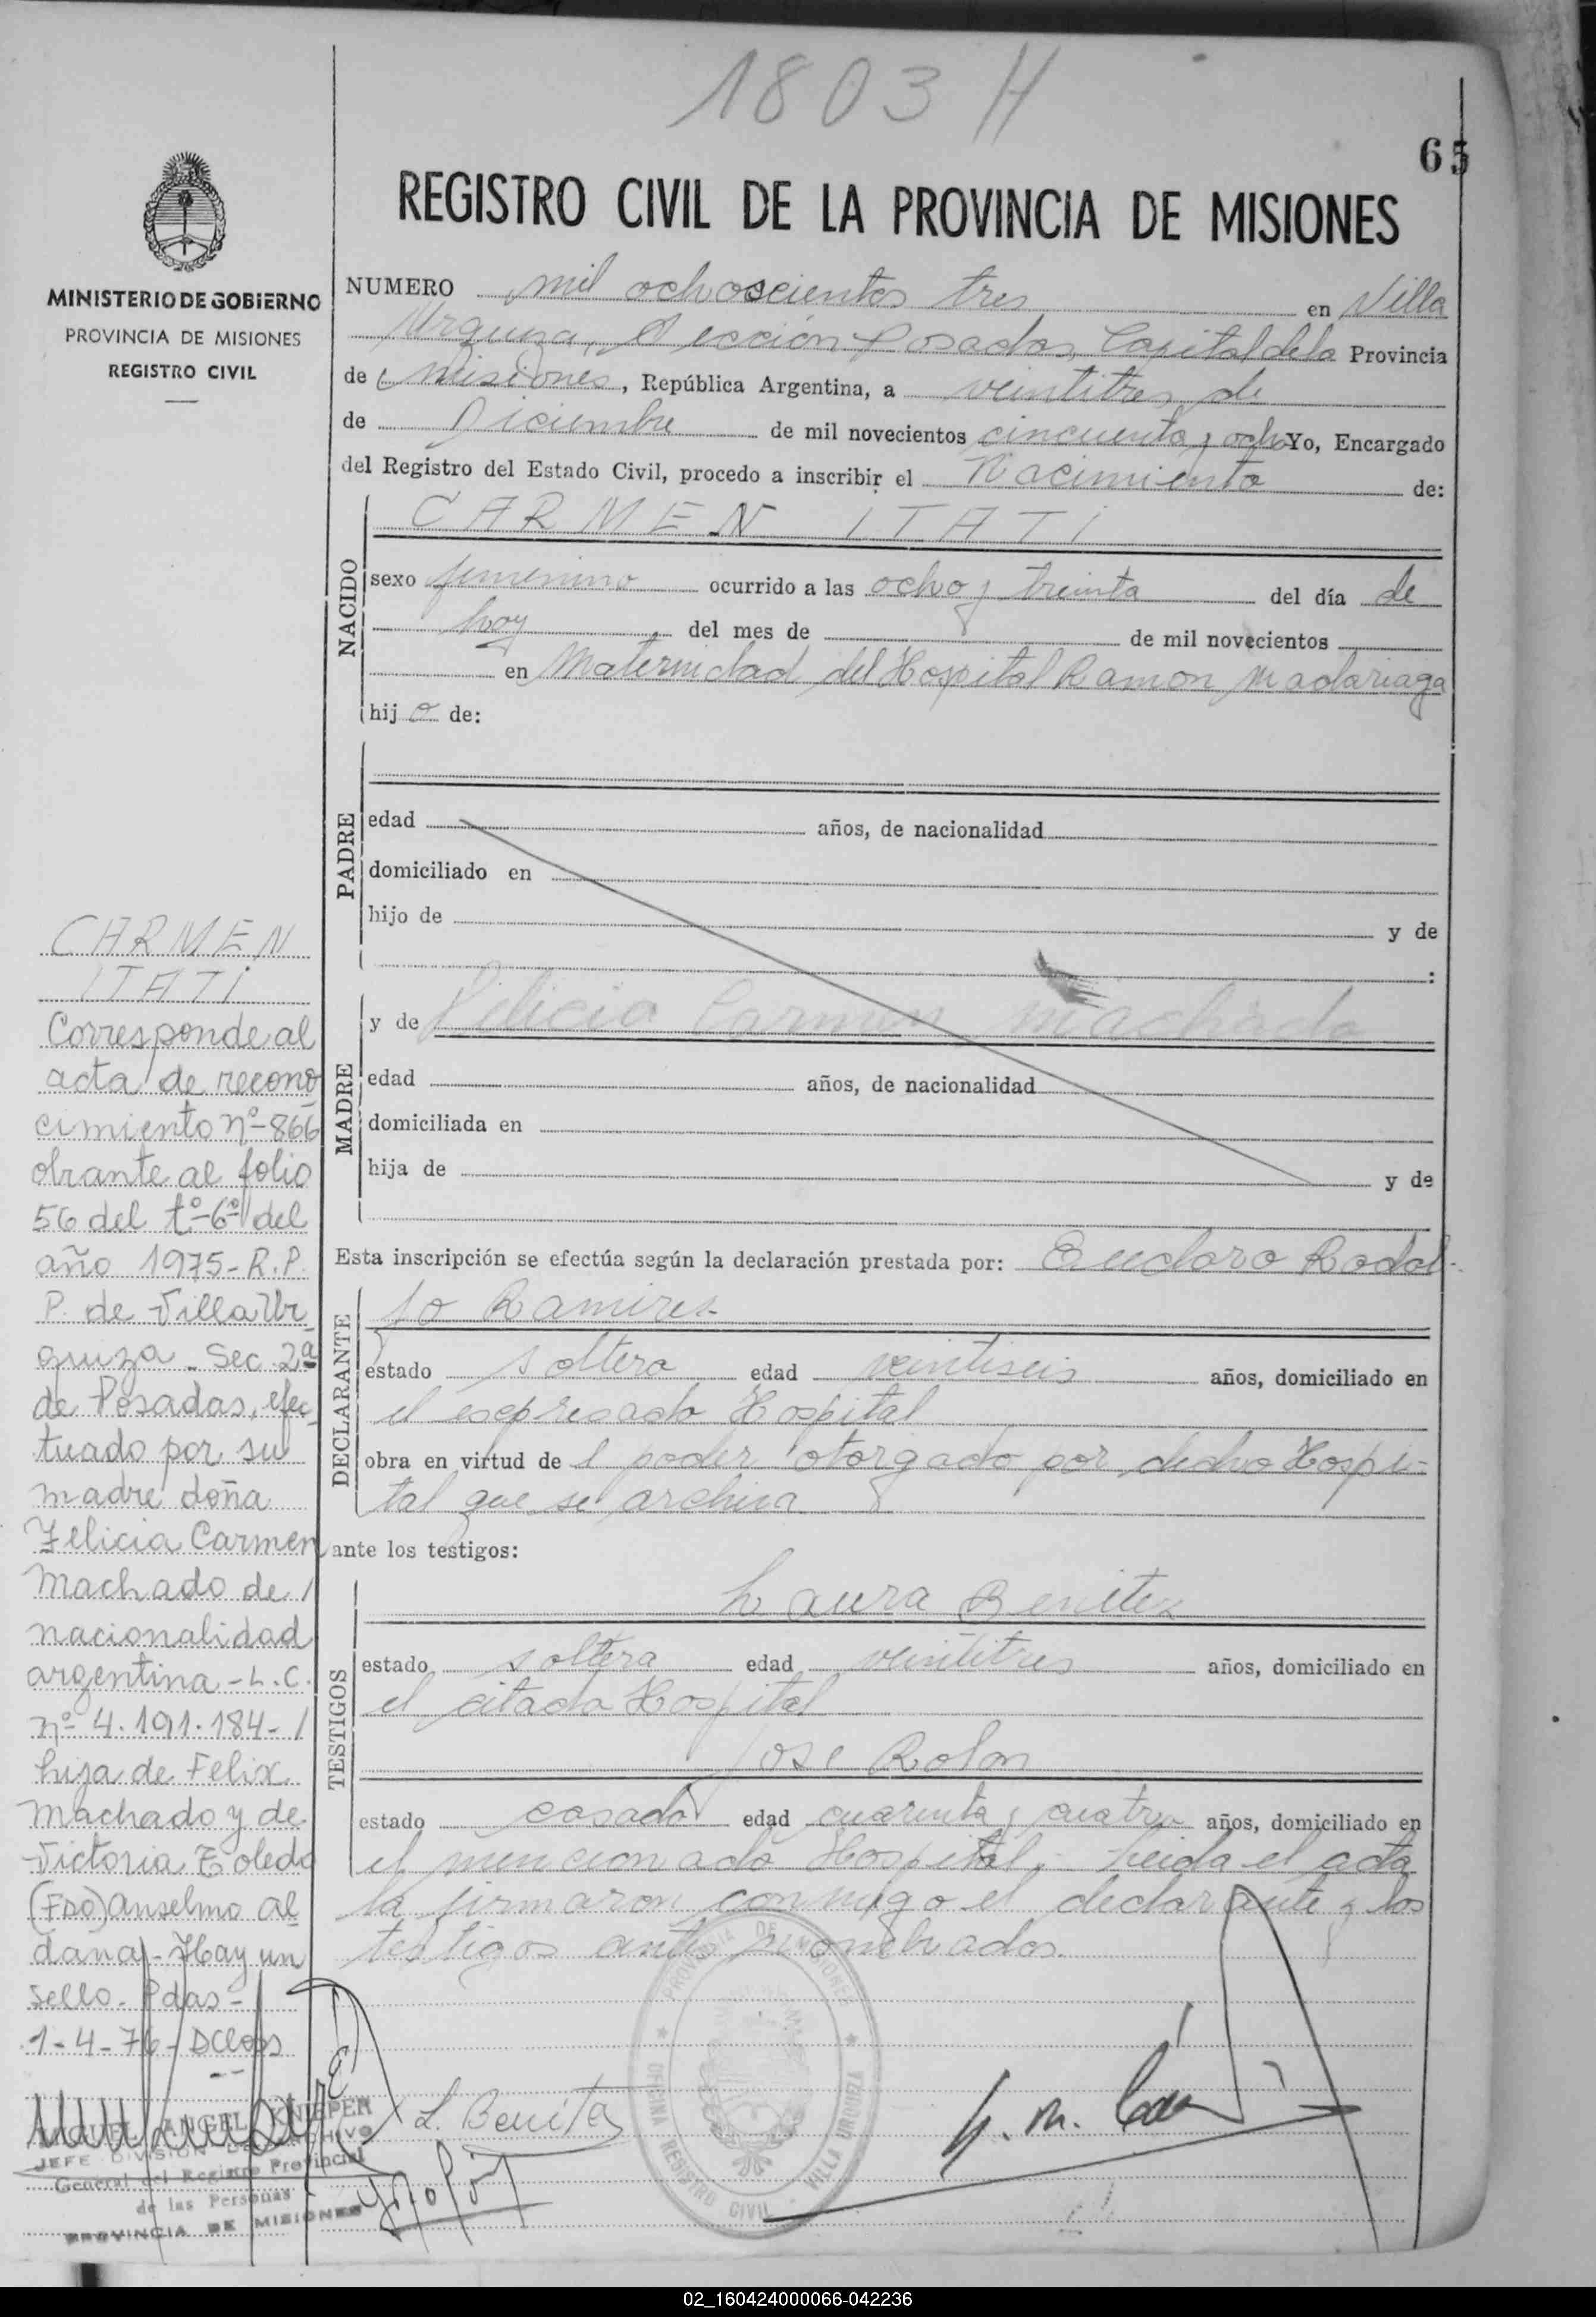 1803 H
65
REGISTRO CIVIL DE LA PROVINCIA DE MISIONES
MINISTERIO DE GOBIERNO
PROVINCIA DE MISIONES
REGISTRO CIVIL
NUMERO mil ochoscientos tres en Villa
Urquiza, Sección Posadas, Capital de la Provincia
de Misiones, República Argentina, a veintitres de
de Diciembre de mil novecientos cincuenta y ocho Yo, Encargado
del Registro del Estado Civil, procedo a inscribir el Nacimiento de:
NACIDO
CARMEN ITATI
sexo femenino ocurrido a las ocho y treinta del día de
hoy del mes de de mil novecientos
en Maternidad del Hospital Ramon Madariaga
hij o de:
PADRE
edad años, de nacionalidad
domiciliado en
hijo de y de
:
MADRE
y de Felicia Carmen Machado
edad años, de nacionalidad
domiciliada en
hija de y de
Esta inscripción se efectúa según la declaración prestada por: Eudoro Rodol-
fo Ramirez
DECLARANTE
estado soltero edad veintiseis años, domiciliado en
el esepresado Hospital
obra en virtud de l poder otorgado por dicho Hospi-
tal que se archiva
ante los testigos:
TESTIGOS
Laura Benitez
estado soltera edad veintitres años, domiciliado en
el citado Hospital
Jose Rolon
estado casado edad cuarenta y cuatro años, domiciliado en
el mencionado Hospital; Leida el acta
la firmaron conmigo el declarante y los
testigos antes nombrados.
CARMEN
ITATI
Corresponde al
acta de recono
cimiento nº-866
obrante al folio
56 del tº-6º del
año 1975-R.P.
P. de Villa Ur
quiza. Sec 2ª
de Posadas, efec
tuado por su
madre doña
Felicia Carmen
Machado de /
nacionalidad
argentina-L.C.
nº 4.191.184-/
hija de Felix
Machado y de
Victoria Toledo
(FDO) Anselmo Al
dana-Hay un
sello-Pdas-
1-4-76-
ANGEL KNIEPER
JEFE DIVISION ARCHIVO
General del Registro Provincial
de las Personas
PROVINCIA DE MISIONES
L. Benitez
PROVINCIA DE MISIONES
OFICINA REGISTRO CIVIL VILLA URQUIZA
02_160424000066-042236